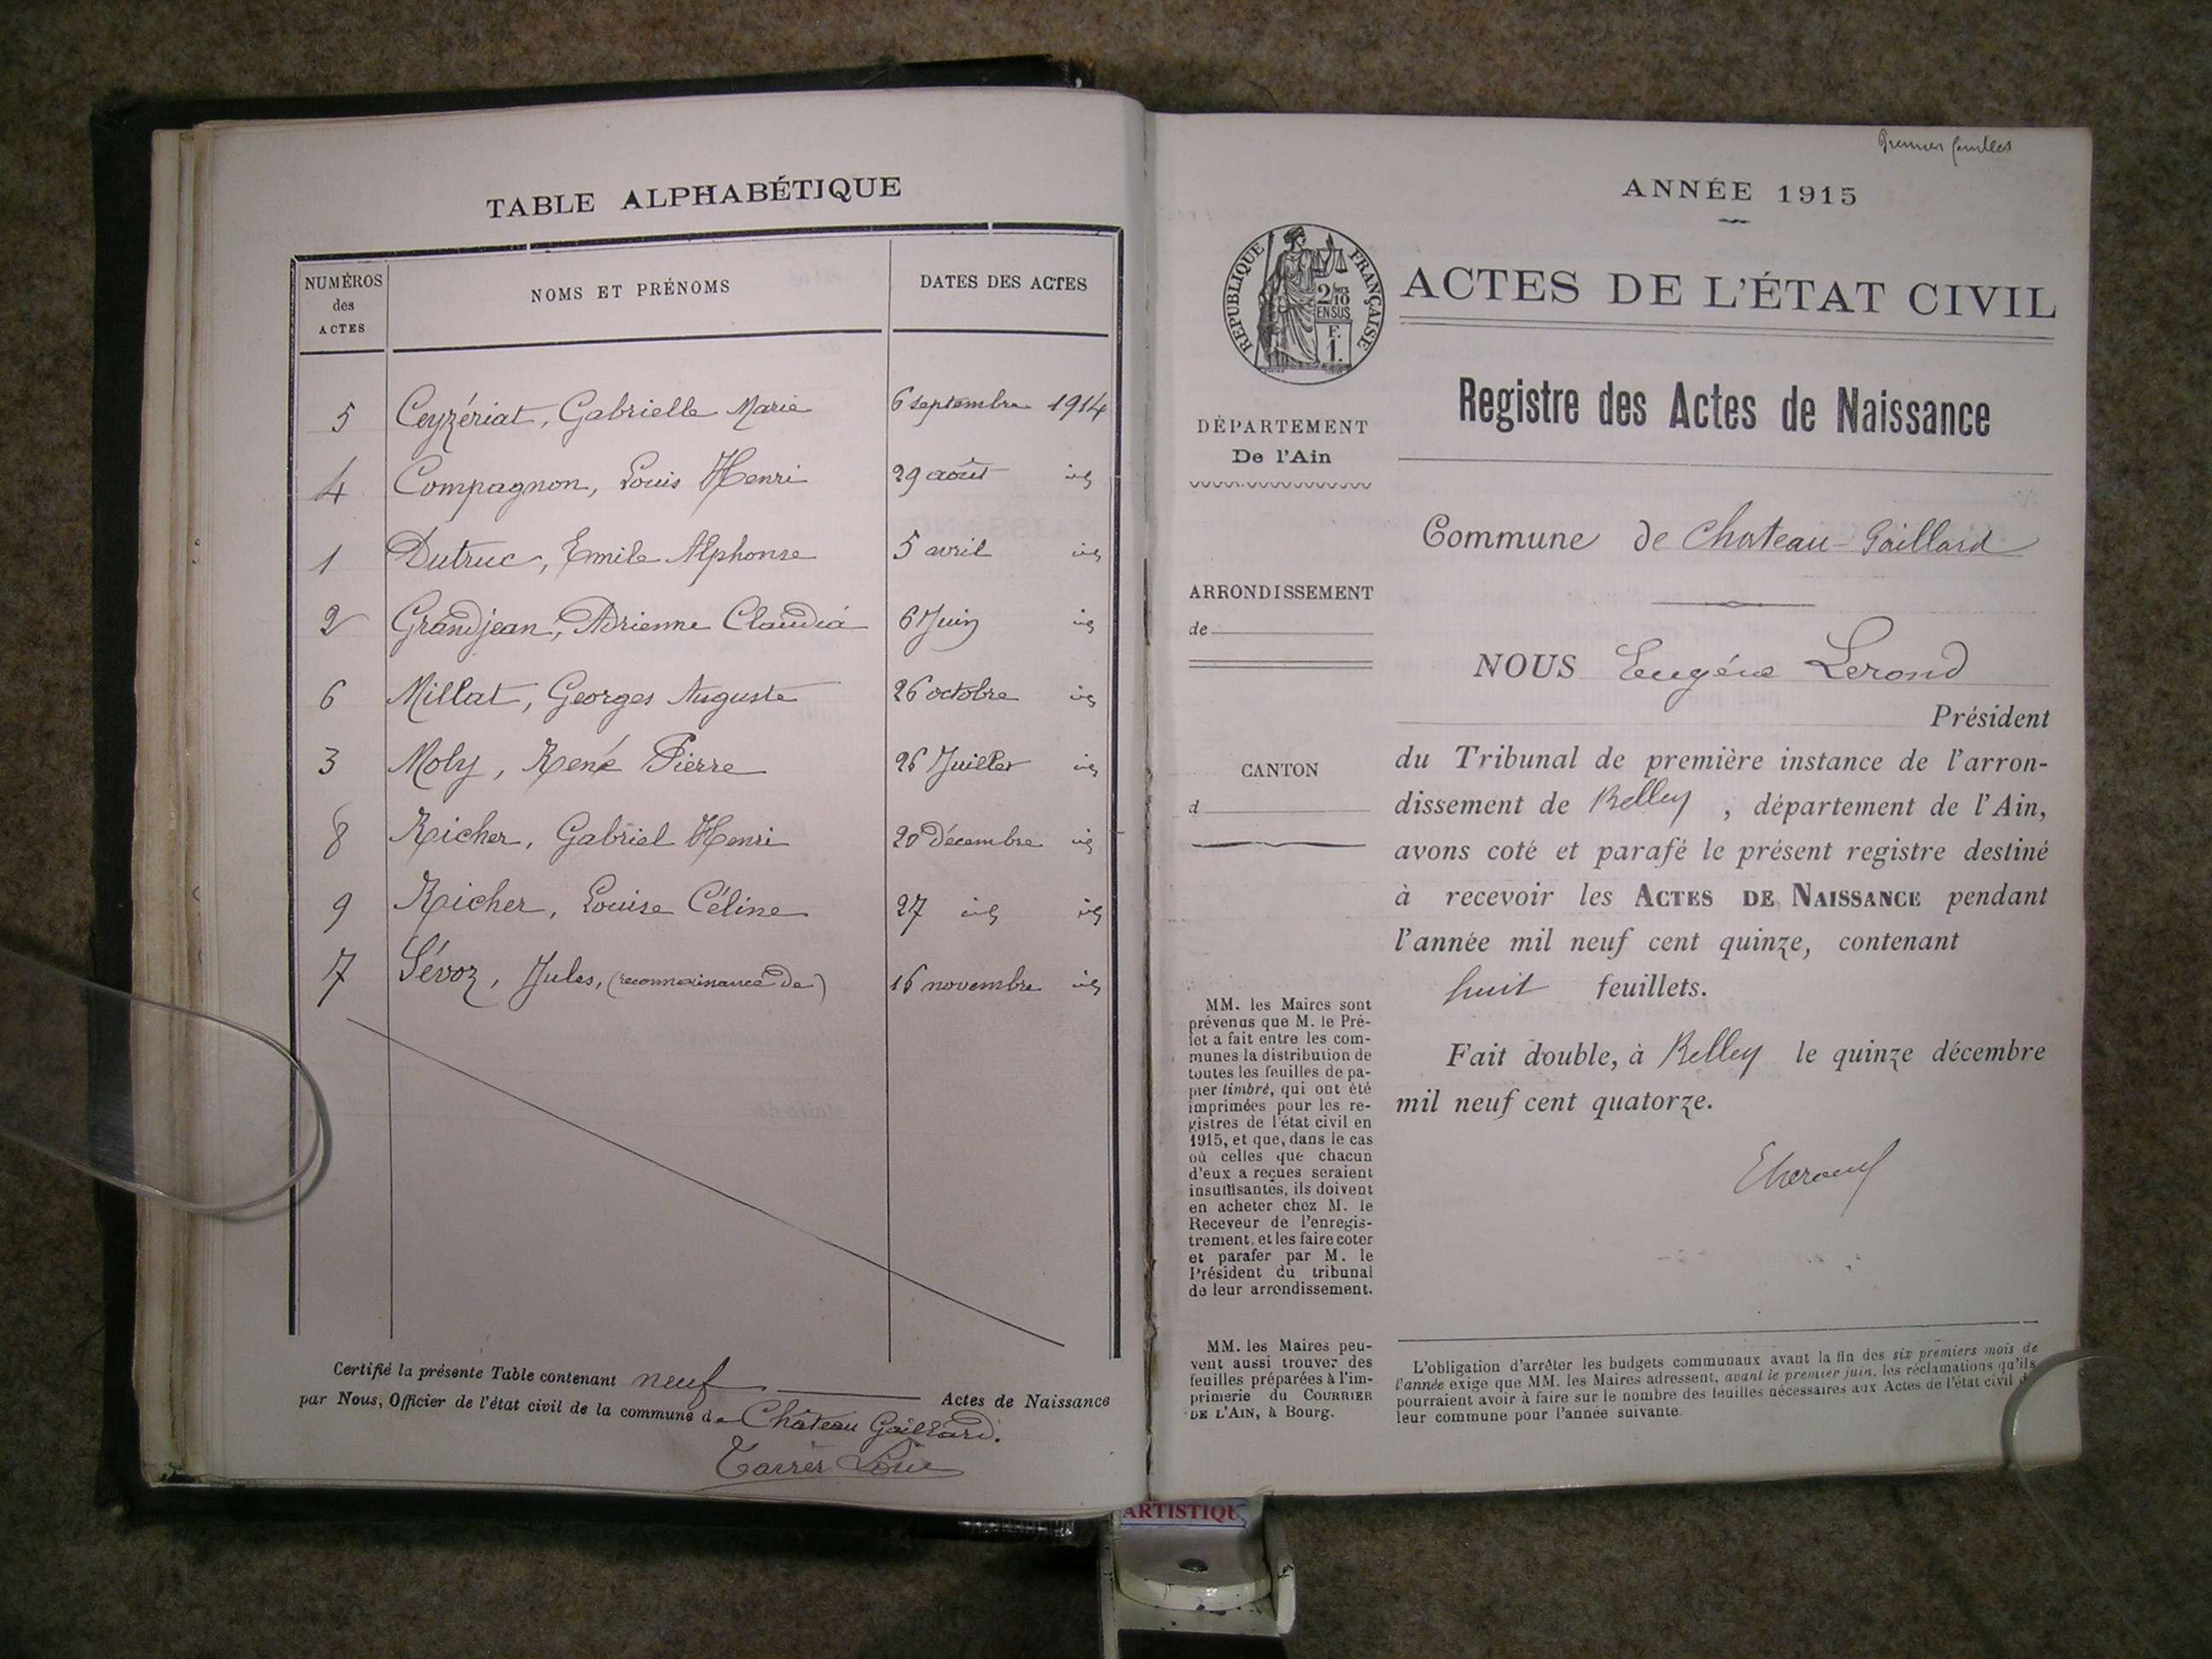 TABLE ALPHABÉTIQUE
NUMÉROS
des
ACTES
NOMS ET PRÉNOMS
DATES DES ACTES
5 Ceyzériat, Gabrielle Marie 6 septembre 1914
4 Compagnon, Louis Henri 29 août id
1 Dutruc, Emile Alphonse 5 avril id
2 Grandjean, Adrienne Claudia 6 Juin id
6 Millat, Georges Auguste 26 octobre id
3 Moly, René Pierre 26 Juillet id
8 Richer, Gabriel Henri 20 Décembre id
9 Richer, Louise Céline 27 id id
7 Sévoz, Jules, (reconnaissance de) 16 novembre id
Certifié la présente Table contenant neuf Actes de Naissance
par Nous, Officier de l'état civil de la commune de Château Gaillard.
Premier feuillet
ANNÉE 1915
RÉPUBLIQUE FRANÇAISE
2/10
EN SUS
F.
1.
ACTES DE L'ÉTAT CIVIL
Registre des Actes de Naissance
DÉPARTEMENT
De l'Ain
Commune de Chateau-Gaillard
ARRONDISSEMENT
de
CANTON
d
NOUS Eugéne Lerond
Président
du Tribunal de première instance de l'arron-
dissement de Belley, département de l'Ain,
avons coté et parafé le présent registre destiné
à recevoir les ACTES DE NAISSANCE pendant
l'année mil neuf cent quinze, contenant
huit feuillets.
Fait double, à Belley le quinze décembre
mil neuf cent quatorze.
MM. les Maires sont
prévenus que M. le Pré-
fet a fait entre les com-
munes la distribution de
toutes les feuilles de pa-
pier timbré, qui ont été
imprimées pour les re-
gistres de l'état civil en
1915, et que, dans le cas
où celles que chacun
d'eux a reçues seraient
insuffisantes, ils doivent
en acheter chez M. le
Receveur de l'enregis-
trement, et les faire coter
et parafer par M. le
Président du tribunal
de leur arrondissement.
MM. les Maires peu-
vent aussi trouver des
feuilles préparées à l'im-
primerie du COURRIER
DE L'AIN, à Bourg.
L'obligation d'arrêter les budgets communaux avant la fin des six premiers mois de
l'année exige que MM. les Maires adressent, avant le premier juin, les réclamations qu'ils
pourraient avoir à faire sur le nombre des feuilles nécessaires aux Actes de l'état civil d
leur commune pour l'année suivante.
ARTISTIQU